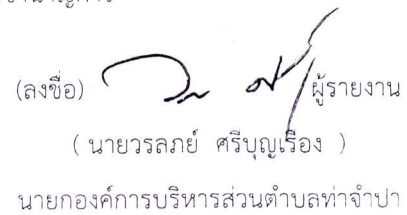 (ลงชื่อ) ผู้รายงาน
( นายวรลภย์ ศรีบุญเรือง )
นายกองค์การบริหารส่วนตำบลท่าจำปา